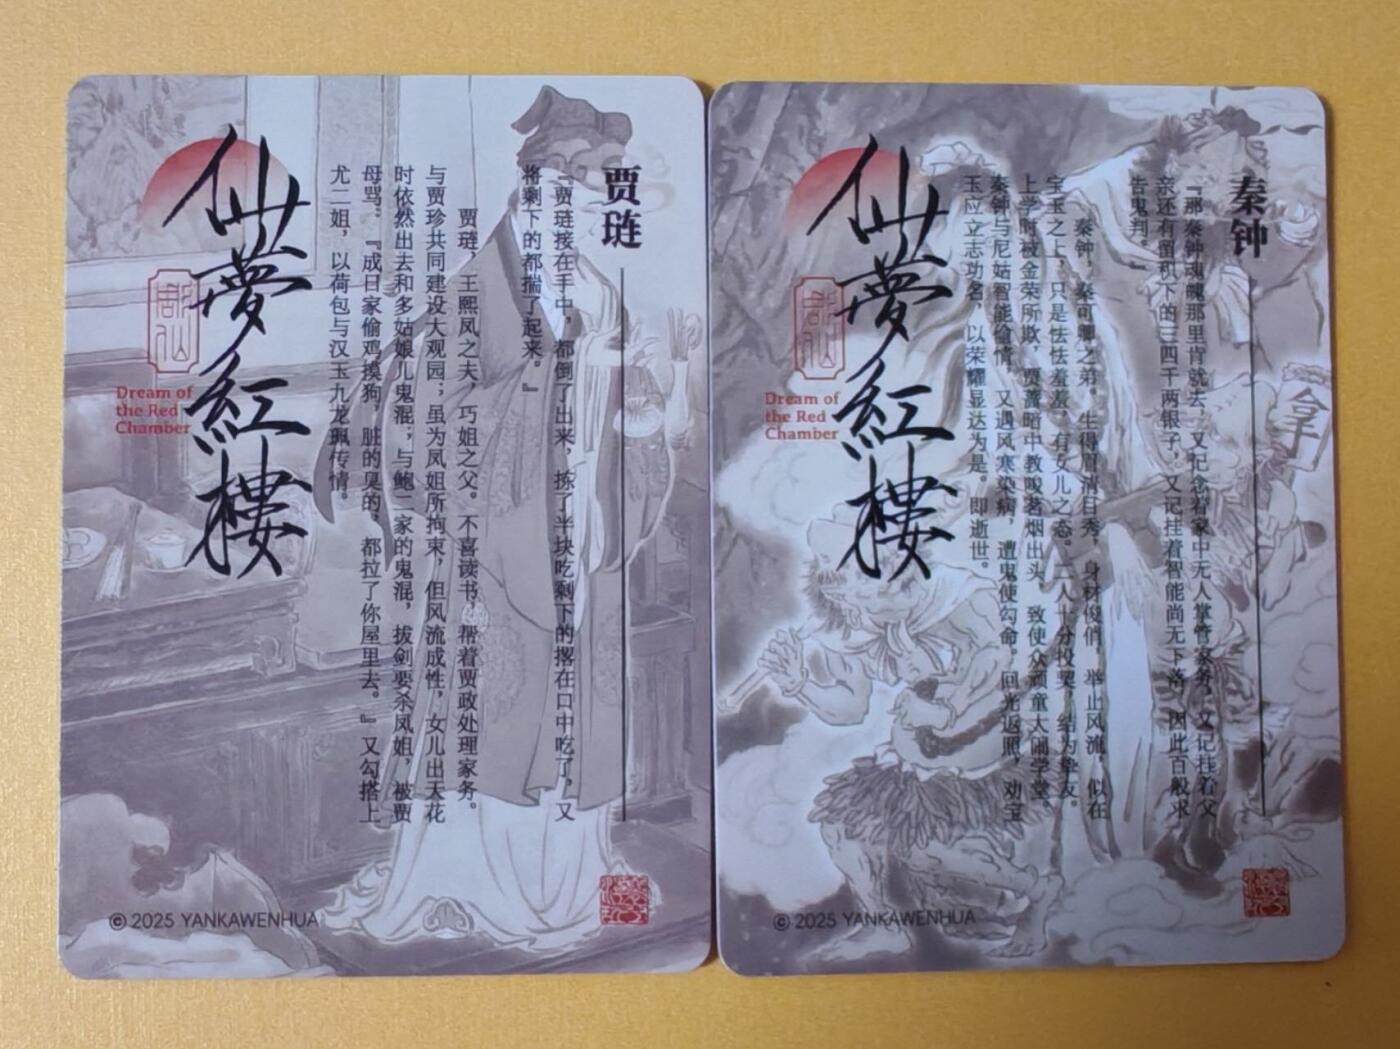 贾琏
『贾琏接在手中，都倒了出来，拣了半块吃剩下的撂在口中吃了，又
将剩下的都揣了起来。』
贾琏，王熙凤之夫，巧姐之父。不喜读书，帮着贾政处理家务。
与贾珍共同建设大观园；虽为凤姐所拘束，但风流成性，女儿出天花
时依然出去和多姑娘儿鬼混，与鲍二家的鬼混，拔剑要杀凤姐，被贾
母骂：『成日家偷鸡摸狗，脏的臭的，都拉了你屋里去。』又勾搭上
尤二姐，以荷包与汉玉九龙珮传情。
仙夢紅樓
Dream of
the Red
Chamber
© 2025 YANKAWENHUA
秦钟
『那秦钟魂魄那里肯就去，又记念着家中无人掌管家务，又记挂着父
亲还有留积下的三四千两银子，又记挂着智能尚无下落，因此百般求
告鬼判。』
秦钟，秦可卿之弟。生得眉清目秀，身材俊俏，举止风流，似在
宝玉之上，只是怯怯羞羞，有女儿之态。二人十分投契，结为挚友。
上学时被金荣所欺，贾蔷暗中教唆茗烟出头，致使众顽童大闹学堂。
秦钟与尼姑智能偷情，又遇风寒染病，遭鬼使勾命。回光返照，劝宝
玉应立志功名，以荣耀显达为是。即逝世。
拿
仙夢紅樓
Dream of
the Red
Chamber
© 2025 YANKAWENHUA